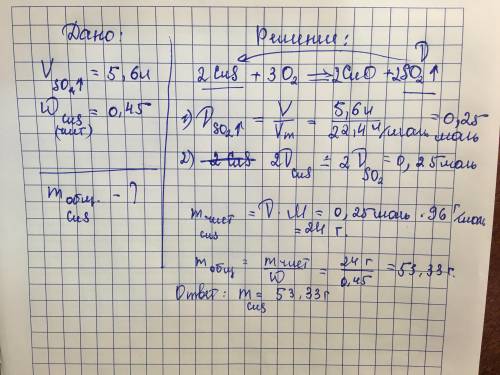 Дано:
V SO₂↑ = 5,6л
W CuS (чист) = 0,45
m общ. CuS - ?
Решение:
2CuS + 3O₂ ⟹ 2CuO + 2SO₂↑
1) ν SO₂↑ = V/Vm = 5,6л/22,4л/моль = 0,25 моль
2) 2ν CuS = 2ν SO₂ = 0,25моль
m чист CuS = ν · M = 0,25моль · 96 г/моль
= 24 г.
m общ = m чист/W = 24 г/0,45 = 53,33г.
Ответ: m CuS = 53,33г